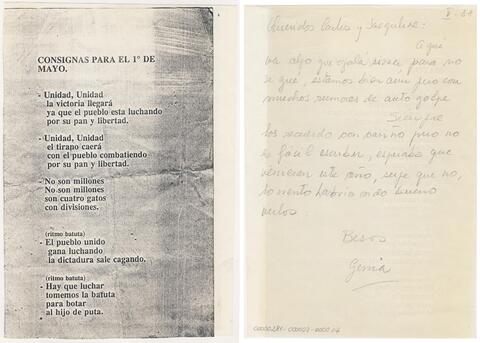 CONSIGNAS PARA EL 1º DE
MAYO.
- Unidad, Unidad
la victoria llegará
ya que el pueblo esta luchando
por su pan y libertad.
- Unidad, Unidad
el tirano caerá
con el pueblo combatiendo
por su pan y libertad.
- No son millones
No son millones
son cuatro gatos
con divisiones.
(ritmo batuta)
- El pueblo unido
gana luchando
la dictadura sale cagando.
(ritmo batuta)
- Hay que luchar
tomemos la batuta
para botar
al hijo de puta.
Queridos Carlos y Jacqueline:
Aquí
va algo que ojalá sirva para no
se que, estamos bien aún pero con
muchos rumores de auto golpe
Siempre
los recuerdo con cariño pero no
es fácil escribir, esperaba que
vinieran este año, supe que no,
lo siento habría sido bueno
verlos.
Besos